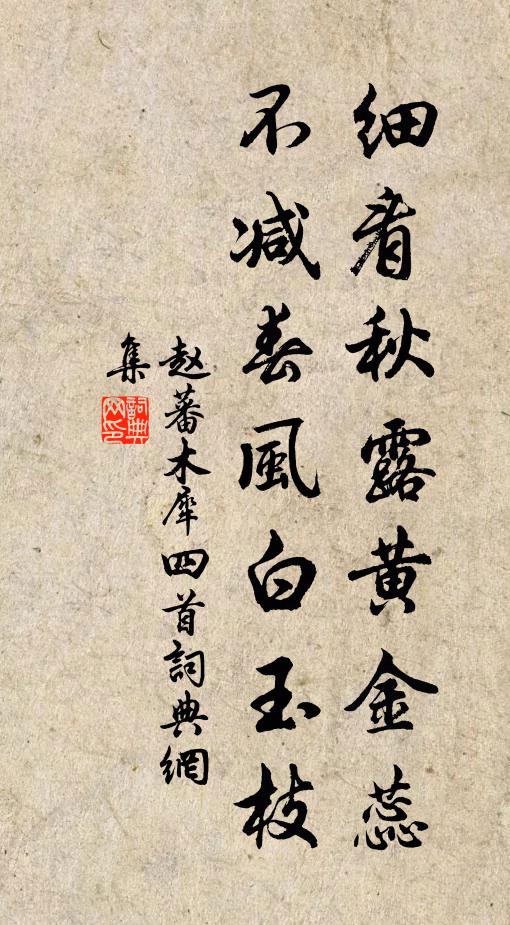 细看秋露黄金蕊
不减春風白玉枝
赵蕃木犀四首詞典網
集
詞典
网印